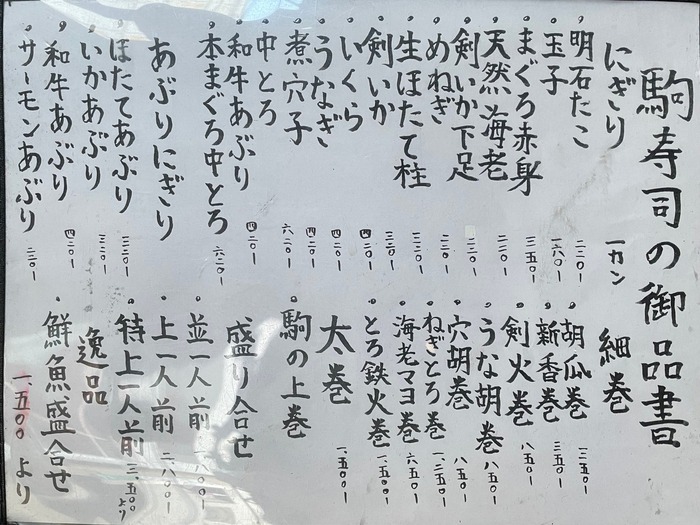 駒寿司の御品書
にぎり 一カン
・明石たこ 二二〇ー
・玉子 一八〇ー
・まぐろ赤身 三五〇ー
・天然海老 二二〇ー
・剣いか下足 二二〇ー
・めねぎ 二二〇ー
・生ほたて柱 三二〇ー
・剣いか 三二〇ー
・いくら 四二〇ー
・うなぎ 四二〇ー
・煮穴子 四二〇ー
・中とろ 六二〇ー
・和牛あぶり 四二〇ー
・本まぐろ中とろ 六二〇ー
あぶりにぎり
・ほたてあぶり 三二〇ー
・いかあぶり 三二〇ー
・和牛あぶり 四二〇ー
・サーモンあぶり 二二〇ー
細巻
・胡瓜巻 三五〇ー
・新香巻 三五〇ー
・剣火巻 八五〇ー
・うな胡巻 八五〇ー
・穴胡巻 八五〇ー
・ねぎとろ巻 一、二五〇ー
・海老マヨ巻 六五〇ー
・とろ鉄火巻 一、五〇〇ー
太巻
・駒の上巻 一、五〇〇ー
盛り合せ
・並一人前 一、八〇〇ー
・上一人前 二、八〇〇ー
・特上一人前 三、五〇〇より
逸品
・鮮魚盛合せ
一、五〇〇より